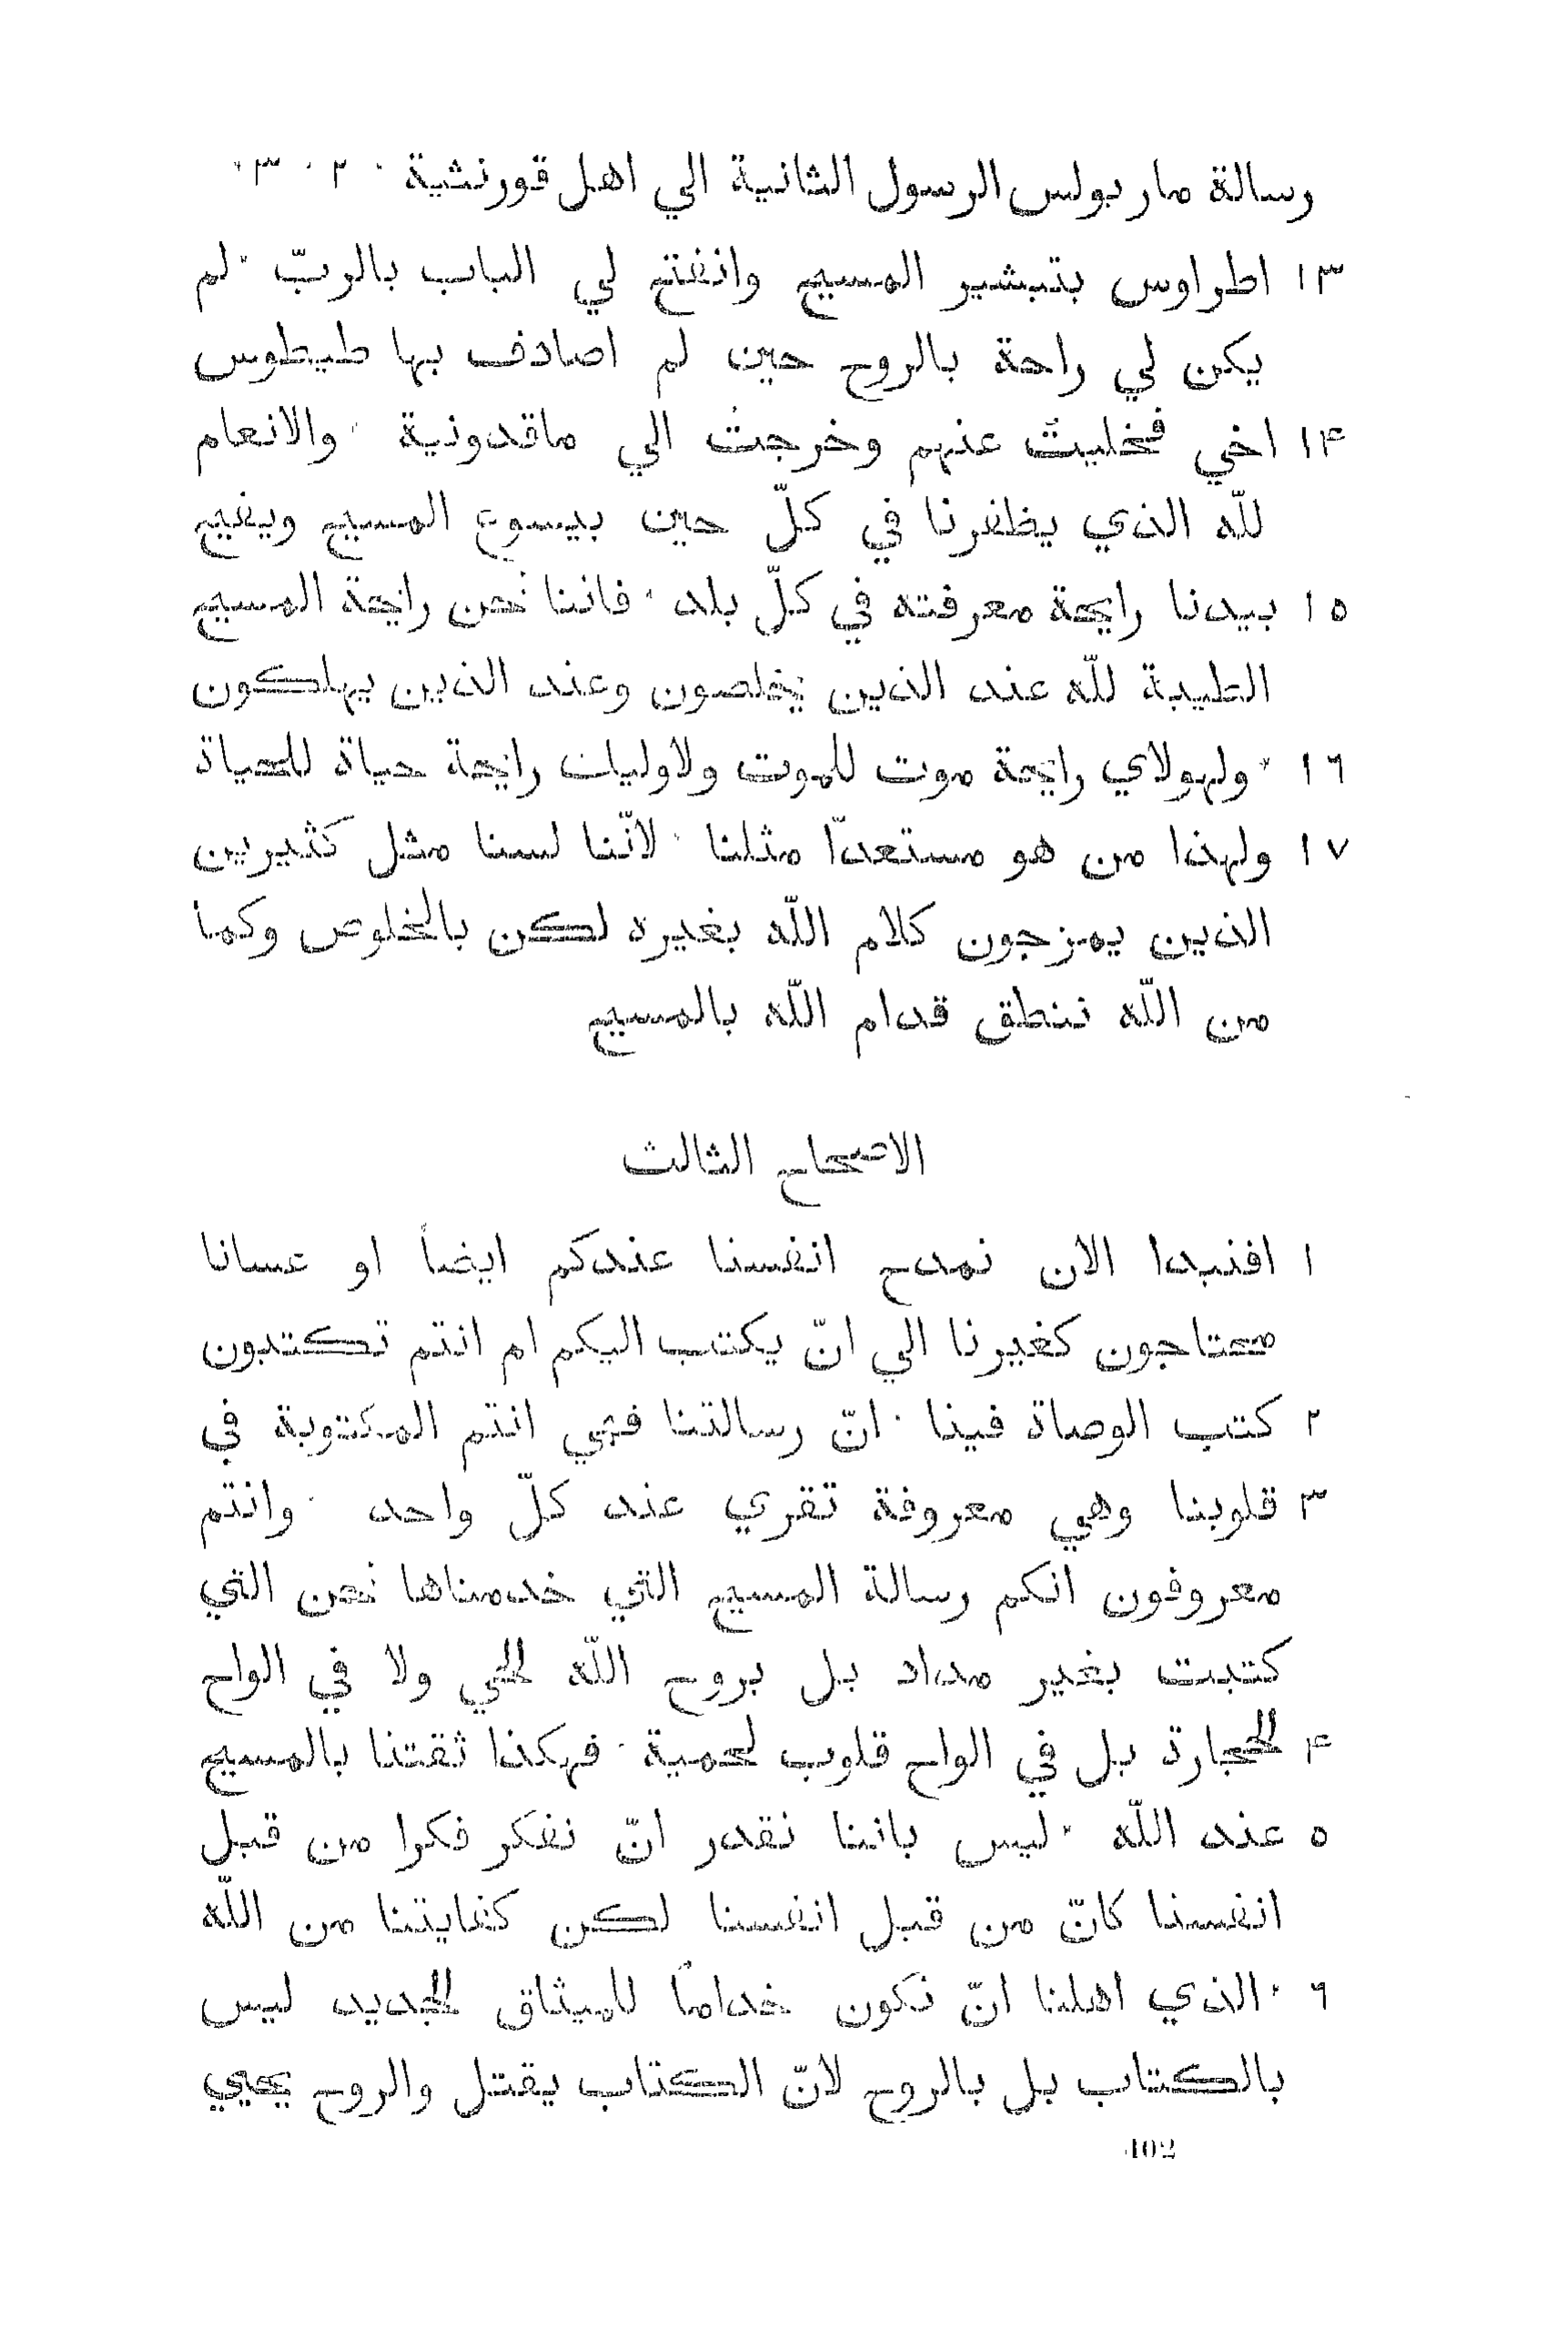 رسالة مار بولس الرسول الثانية الي اهل قورنثية ٠ ٢ ٠ ٣ *
١٣ اطراوس بتبشير المسيح وانفتح لي الباب بالربّ ٠ لم
يكن لي راحة بالروح حين لم اصادف بها طيطوس
١۴ اخي فخليتُ عنهم وخرجتُ الي ماقدونية ٠ والانعام
للّه الذي يظفرنا في كلّ حين بيسوع المسيح ويفيح
١٥ بيدنا رايحة معرفته في كلّ بلد ٠ فاننا نحن رايحة المسيح
الطيبة للّه عند الذين يخلصون وعند الذين يهلكون
١٦ * ولهولاي رايحة موت للموت ولاوليك رايحة حياة للحياة
١٧ ولهذا من هو مستعدّا مثلنا ٠ لانّنا لسنا مثل كثيريين
الذين يمزجون كلام اللّه بغيره لكن بالخلوص وكما
من اللّه ننطق قدام اللّه بالمسيح
الاصحاح الثالث
١ افنبدا الان نمدح انفسنا عندكم ايضاً او عسانا
محتاجون كغيرنا الي انّ يكتب اليكم ام انتم تكتبون
٢ كتب الوصاة فينا ٠ انّ رسالتنا فهي انتم المكتوبة في
٣ قلوبنا وهي معروفة تقري عند كلّ واحد ٠ وانتم
معروفون انكم رسالة المسيح التي خدمناها نحن التي
كتبت بغير مداد بل بروح اللّه الحي ولا في الواح
۴ الحجارة بل في الواح قلوب لحمية ٠ فهكذا ثقتنا بالمسيح
٥ عند اللّه * ليس باننا نقدر انّ نفكر فكرا من قبل
انفسنا كانّ من قبل انفسنا لكن كفايتنا من اللّه
٦ ٠ الذي اهلنا انّ نكون خداماً للميثاق الجديد ليس
بالكتاب بل بالروح لانّ الكتاب يقتل والروح يحيي
402